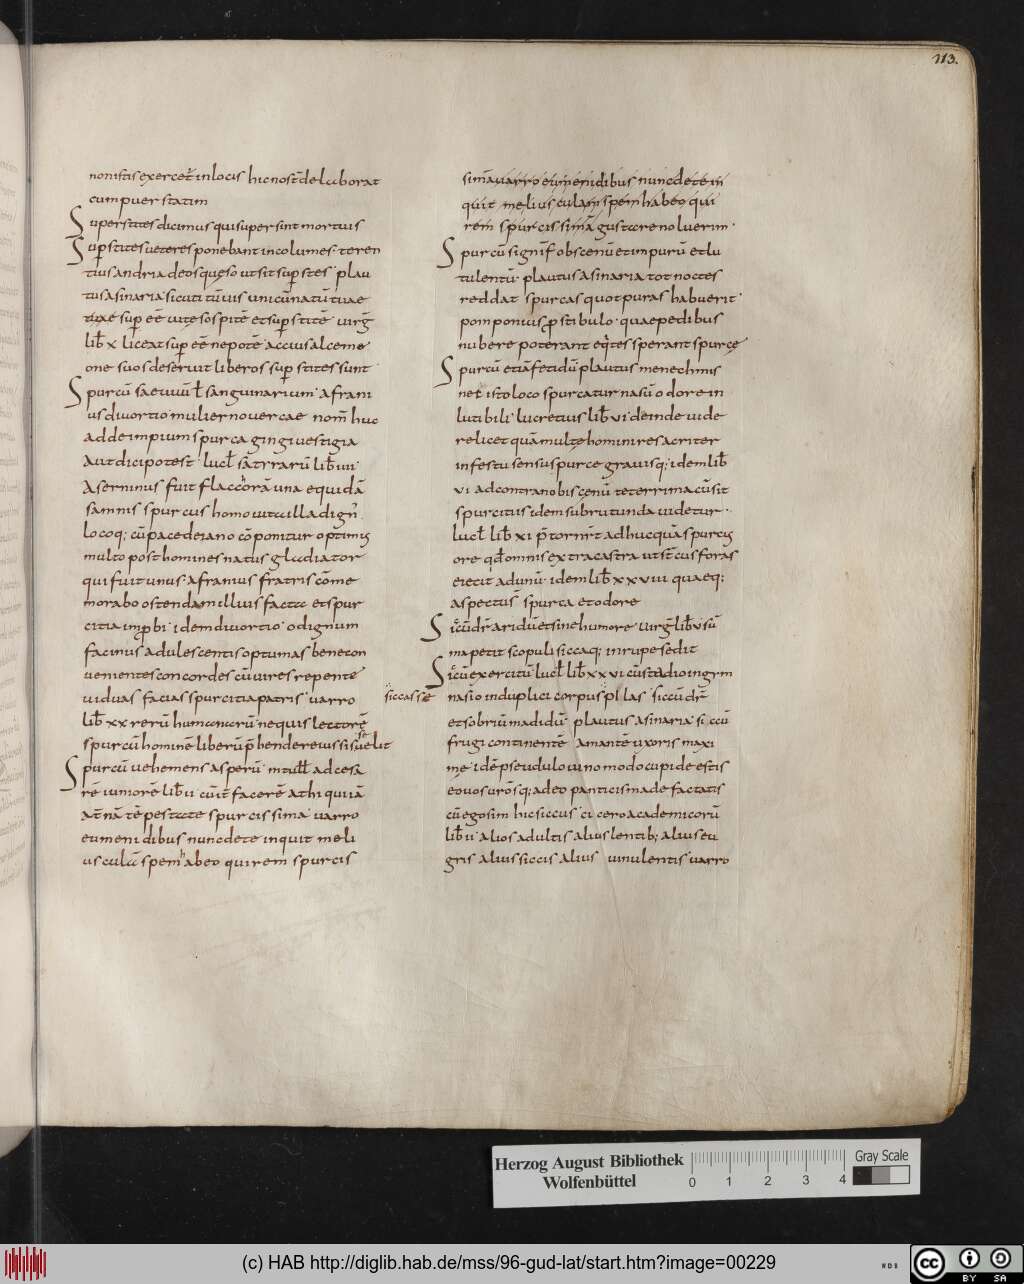 113.
nonistis exercet̄ in locis hic nost̄ de laborat
cum puer statim
Superstites dicimus qui supersint mortuis
Sup̱stites ueteres ponebant incolumes · teren
tius andria deos quęso ut sit sup̱stes · plau
tus asinaria · sicuti tuū uis unicū natū tuae
tuae sup̱eē uitę sospitē et sup̱stitē uirḡ
lib̄ x liceat sup̱eē nepotē accius alceme
one suos deseruit liberos sup̱stites sunt
Spurcū saeuuū ł sanguinarium · afrani
us diuortio mulier nouercae nom̄ huc
adde impium spurca gingi uestigia
Aut dici potest · lucł sātyrarū lib̄ iiii
Aserninus fuit flaccorā una equidā
samnis spurcus homo uita illa dign'
locoq; cū pacedeiano cōponitur optimus
multo post homines natus gladiator
qui fuit unus afranius fratris cōme
morabo ostendam illius facta et spur
citia imp̱bi · idem diuortio · o dignum
facinus adulescentis optumas bene con
uenientes concordes cū uires repente
uiduas facias spurcitia patris · uarro
lib̄ xx rerū humanarū nequis lectorē
spurcū hominē liberū p̄bendere iussisse uelit
Spurcū uehemens asperū · m tulł ad cesa
rē iumorē lib̄ ii cūit̄ facerē athi quiiā
at̄nā tēpestate spurcissima uarro
eumenidibus nunc dete inquit meli
us culā spem habeo qui rem spurcis
simā uarro eumenidibus nunc dete in
quit melius culam spem habeo qui
rem spurcissimā gustare noluerim ·
Spurcū signif̄ obscenū et impurū et lu
tulentū · plautus asinaria tot noctes
reddat spurcas quot puras habuerit ·
pomponius p̱stibulo · quae pedibus
nubere poterant eq̄tes sperant spurcę
Spurcū etiā fetidū · plautus menechmis
net isto loco spurcatur nasū odore in
lutibili · lucretius lib̄ vi deinde uide
relicet quā multę homini res acriter
infestu sensu spurcę grauisq; idem lib̄
vi ad contra nobis cęnū teterrima cū sit
spurcitus idem subrutunda uidetur ·
lucł lib̄ xi p̄tor nr̄t ad huc quā spurcus
ore qđ omnis extra castra ut st̄cus foras
eiecit ad unū · idem lib̄ xxviii quaeq;
aspectus spurca et odore
Siccū dr̄ aridū et sine humore · uirḡ lib̄ v sū
ma petit scopuli siccaq; in rupe sedit
siccasse
Siccū exercitū lucł lib̄ xxvi cū stadio in gym
nasio induplici corpus p̱llas siccū dr̄
et sobriū madidū · plautus asinaria siccū
frugi continentē amantē uxoris maxi
me · idē pseudulo uino modo cupide estis
eo uos urōsq; adeo panticis madefactatis
cū ego sim hic siccus · cicero academicorū
lib̄ ii · alios adultis alius lentib; alius eu
gris alius siccis alius uinulentis · uarro
Herzog August Bibliothek
Wolfenbüttel
0 1 2 3 4
Gray Scale
(c) HAB http://diglib.hab.de/mss/96-gud-lat/start.htm?image=00229
WDB
cc BY SA